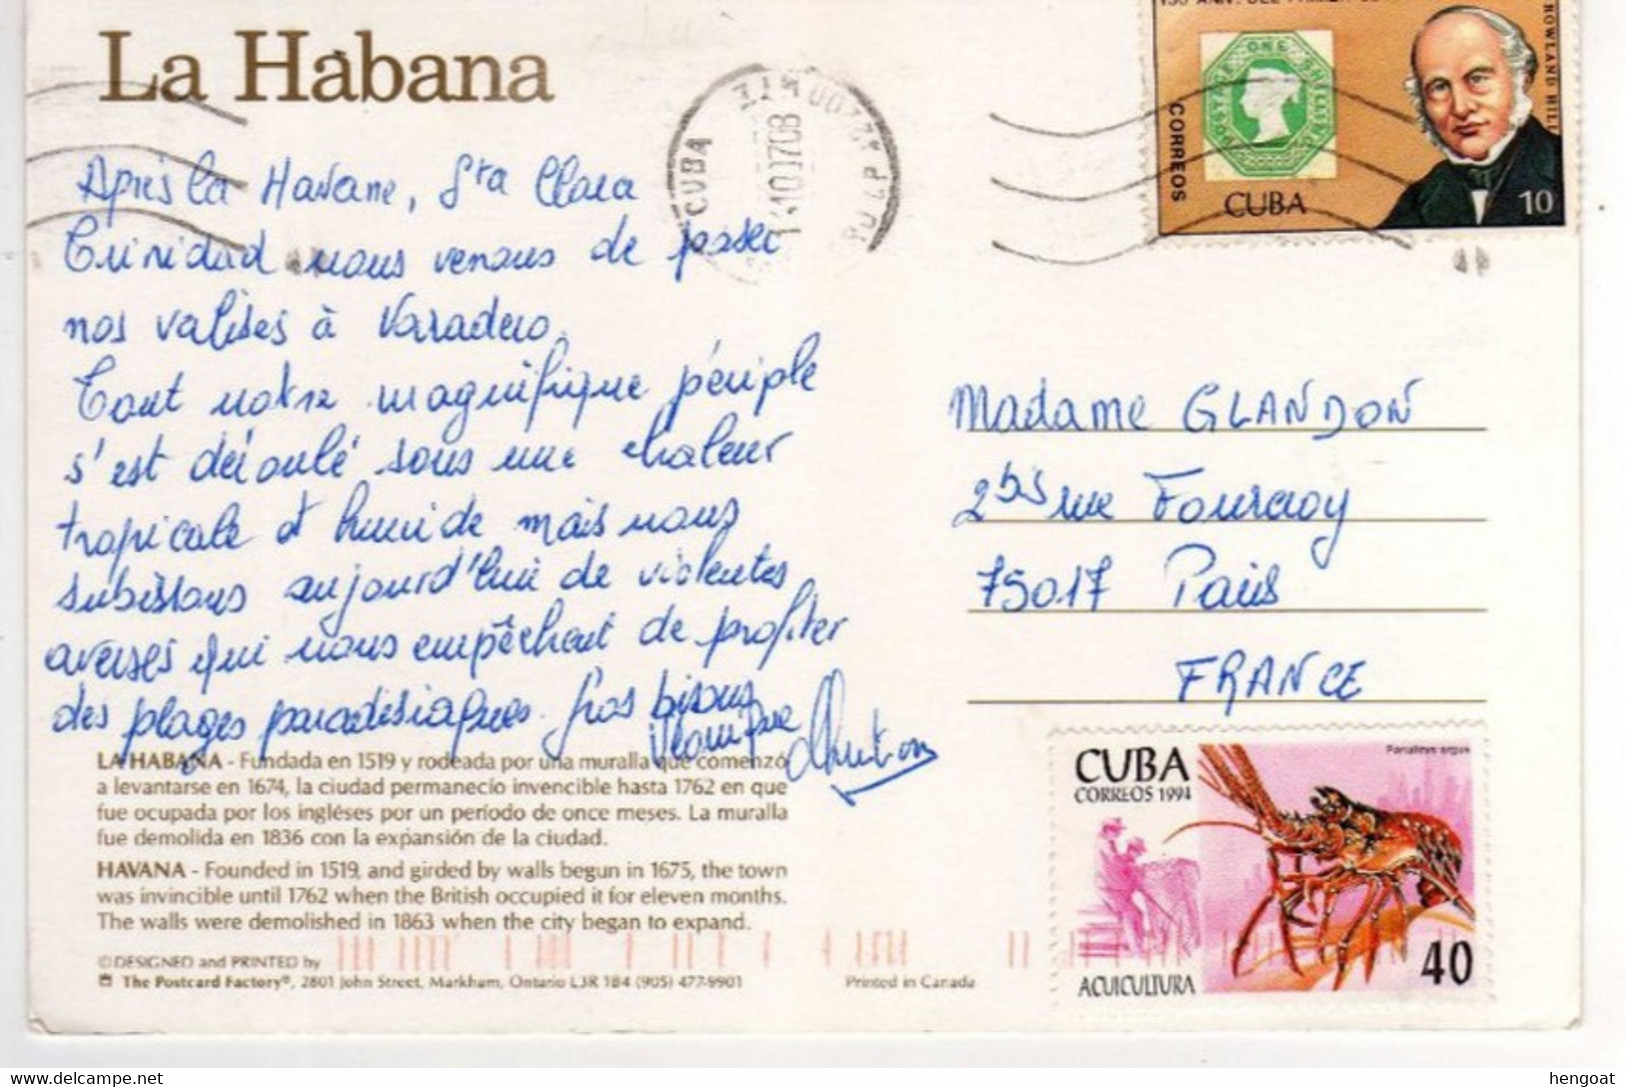 La Habana
Après la Havane, Sta Clara
Trinidad nous venons de poser
nos valises à Varadero.
Tout notre magnifique périple
s'est déroulé sous une chaleur
tropicale et humide mais nous
subissons aujourd'hui de violentes
averses qui nous empêchent de profiter
des plages paradisiaques. Gros bisous
CUBA
CORREOS
ROWLAND HILL
POSTAGE ONE SHILLING
CUBA
10
Madame GLANDON
2bis rue Fourcroy
75017 Paris
FRANCE
LA HABANA - Fundada en 1519 y rodeada por una muralla que comenzó
a levantarse en 1674, la ciudad permanecío invencible hasta 1762 en que
fue ocupada por los ingléses por un período de once meses. La muralla
fue demolida en 1836 con la expansión de la ciudad.
HAVANA - Founded in 1519, and girded by walls begun in 1675, the town
was invincible until 1762 when the British occupied it for eleven months.
The walls were demolished in 1863 when the city began to expand.
© DESIGNED and PRINTED by
The Postcard Factory®, 2801 John Street, Markham, Ontario L3R 1B4 (905) 477-9901
Printed in Canada
CUBA
CORREOS 1994
Panulirus argus
ACUICULTURA
40
hengoat